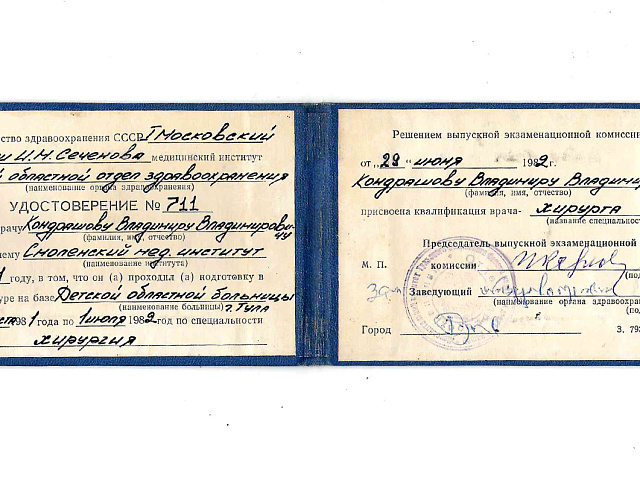 ство здравоохранения СССР I Московский
им И.М. Сеченова медицинский институт
й областной отдел здравоохранения
(наименование органа здравоохранения)
УДОСТОВЕРЕНИЕ № 711
врачу Кондрашову Владимиру Владимировичу
(фамилия, имя, отчество)
ему Смоленский мед. институт
(наименование института)
1 году, в том, что он (а) проходил (а) подготовку в
уре на базе Детской областной больницы
(наименование больницы) г. Тула
ста 1981 года по 1 июля 1982 год по специальности
хирургия
Решением выпускной экзаменационной комисси
от „29" июня 1982 г.
Кондрашову Владимиру Владими
(фамилия, имя, отчество)
присвоена квалификация врача- хирурга
(название специальнос
Председатель выпускной экзаменационной
М. П. комиссии
(под
Зам Заведующий
(наименование органа здравоохран
(по
Город
З. 793